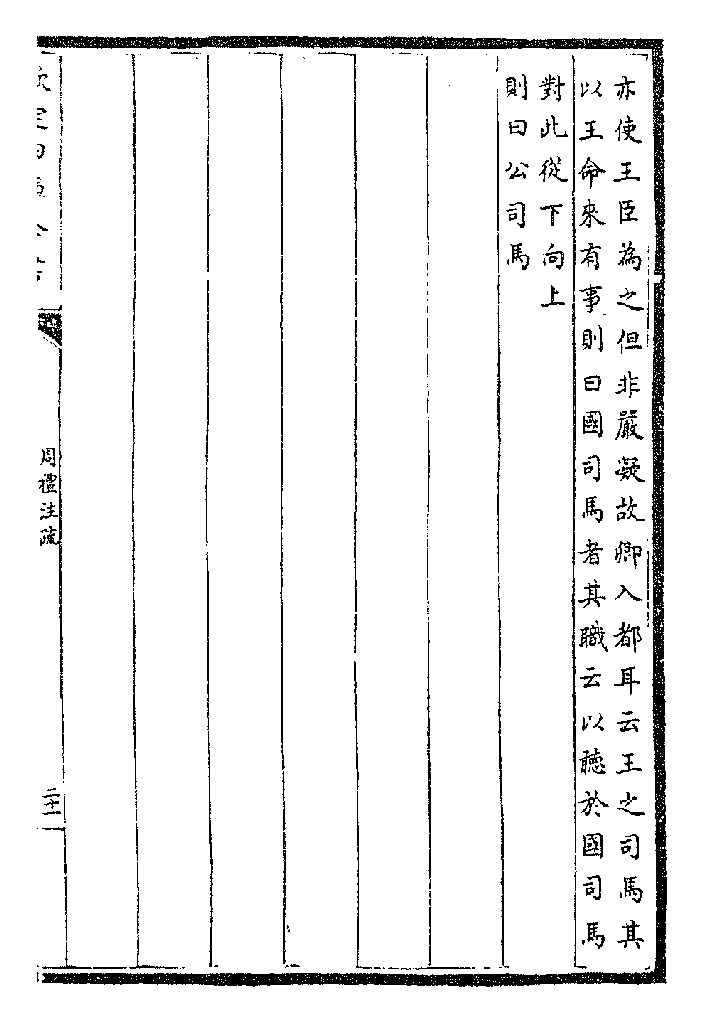 亦使王臣為之但非嚴凝故卿入都耳云王之司馬其
以王命來有事則曰國司馬者其職云以聽於國司馬
對此從下向上
則曰公司馬
周禮注疏
二十一